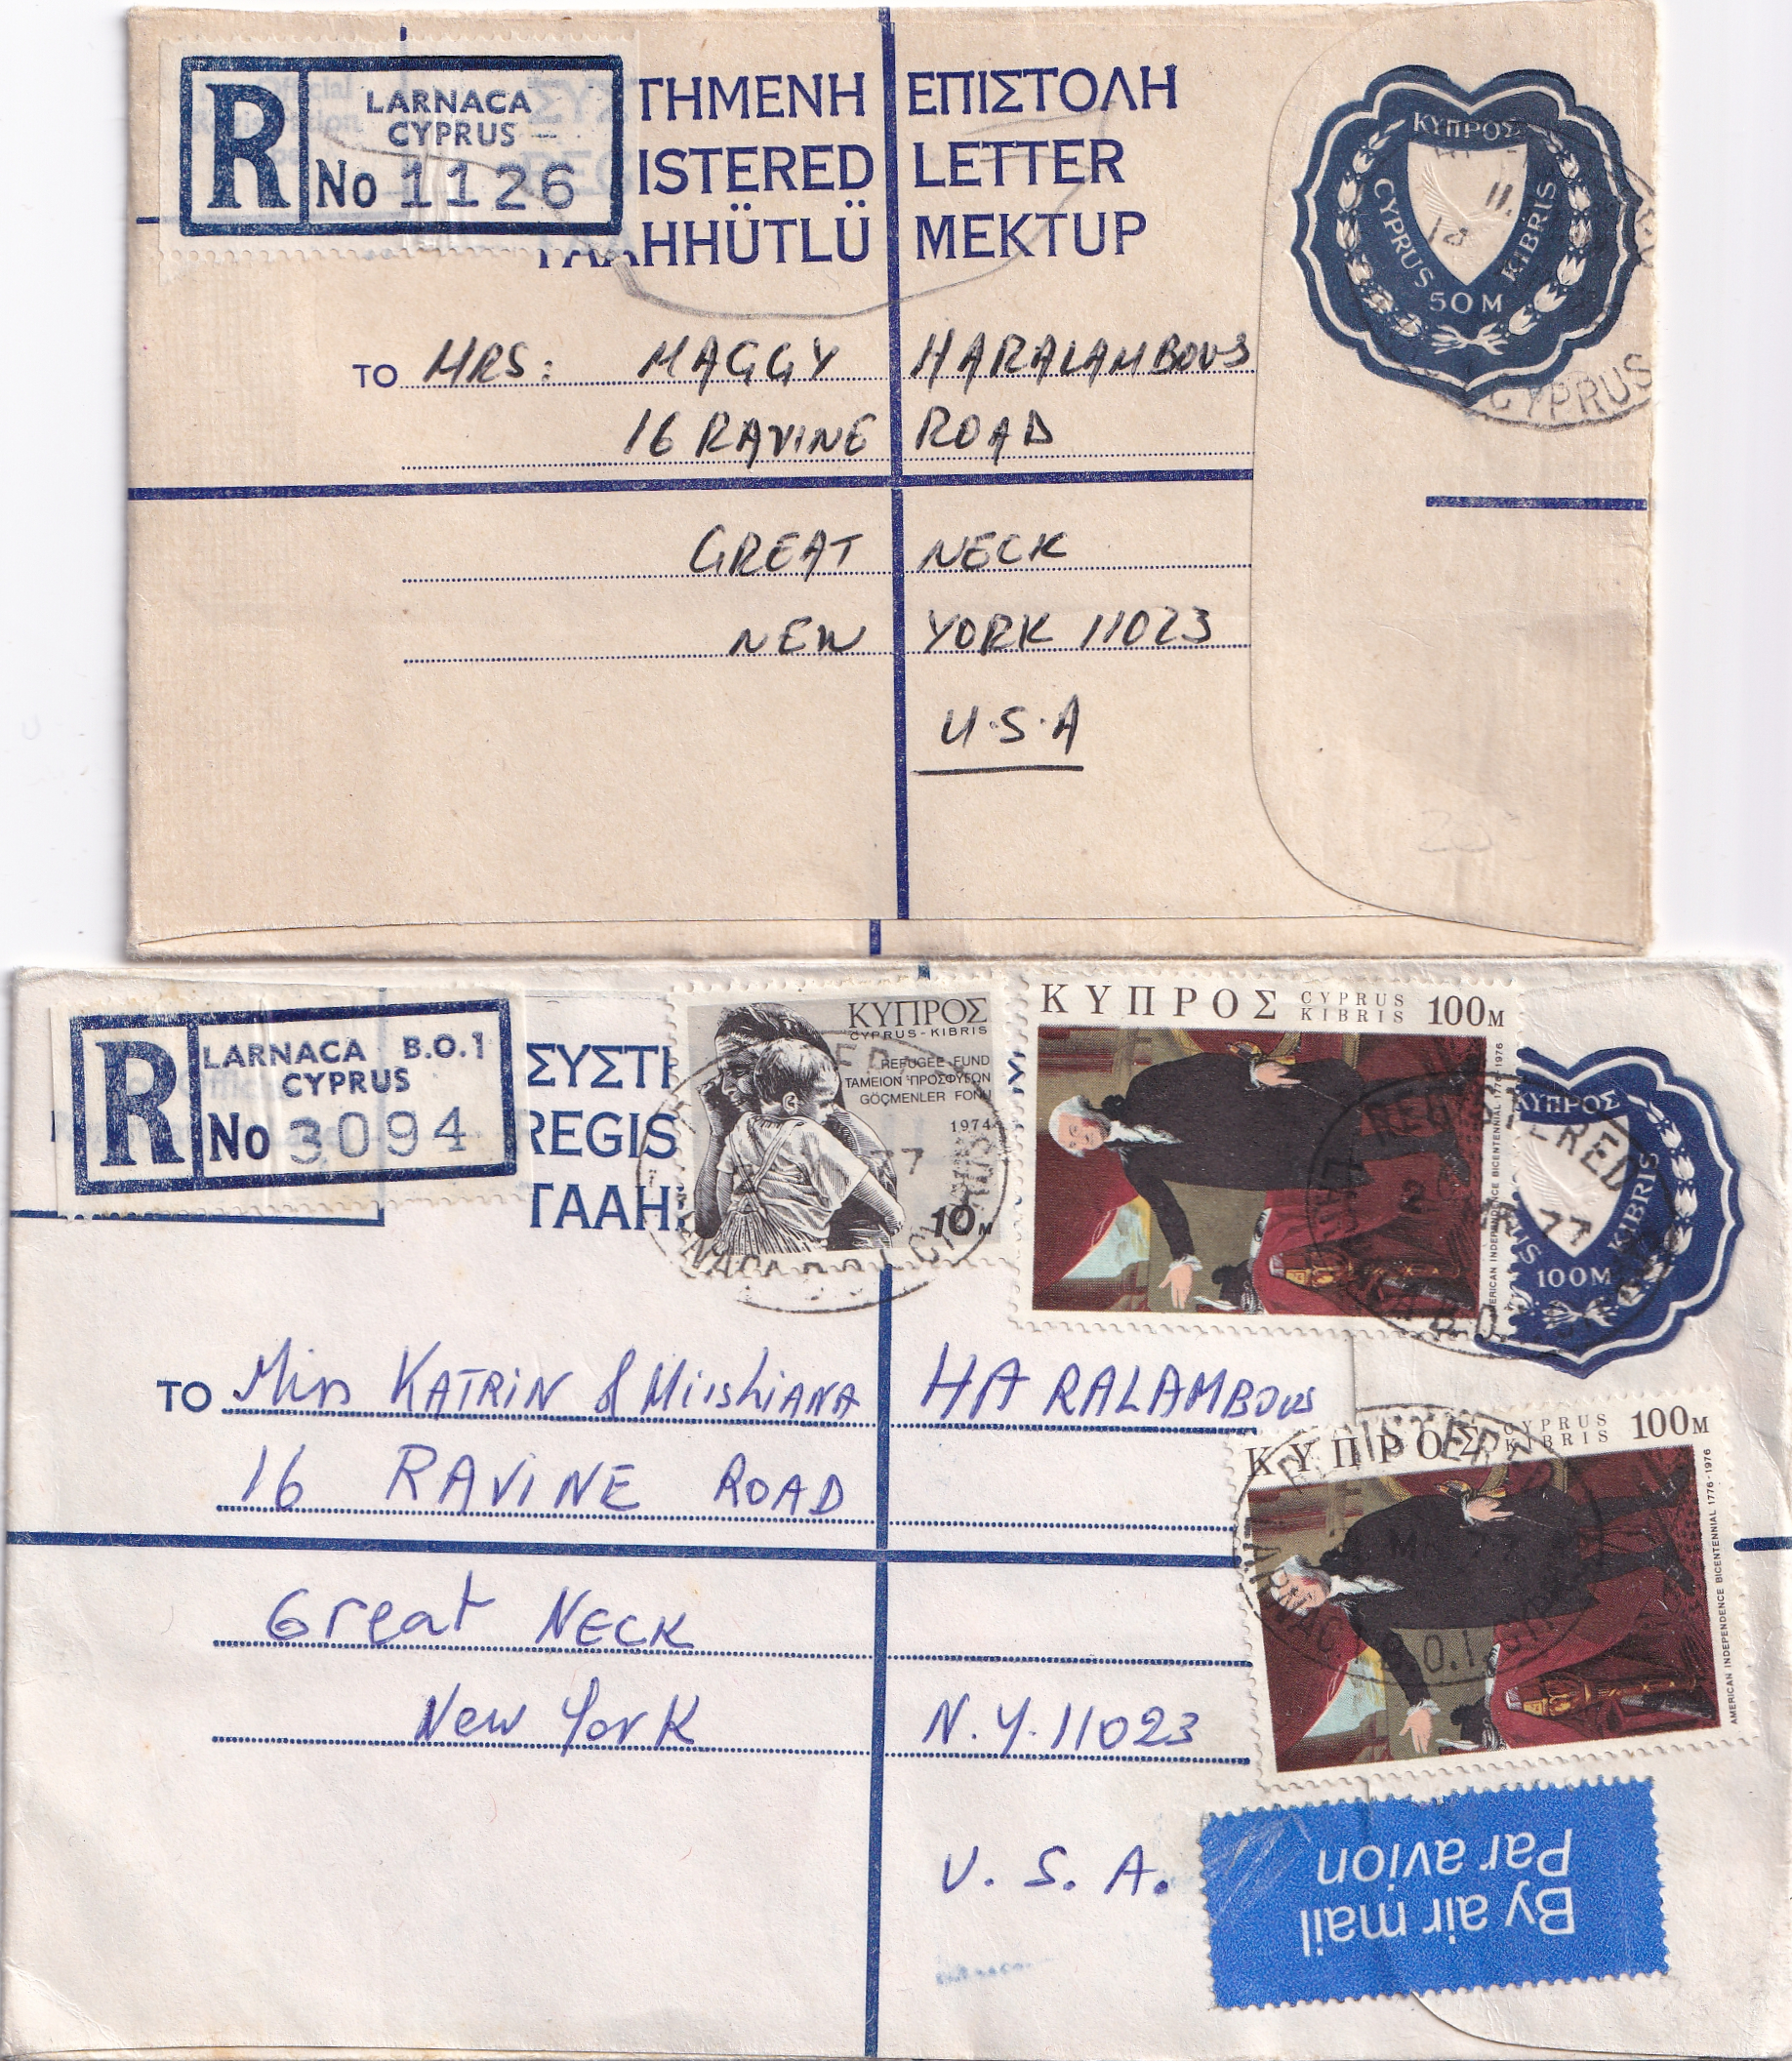 R
LARNACA
CYPRUS
No 1126
ΤΗΜΕΝΗ ΕΠΙΣΤΟΛΗ
ISTERED LETTER
AHHÜTLÜ MEKTUP
ΚΥΠΡΟΣ
CYPRUS KIBRIS
50 M
CYPRUS
TO MRS: MAGGY HARALAMBOUS
16 RAVINE ROAD
GREAT NECK
NEW YORK 11023
U.S.A
R
LARNACA B.O.1
CYPRUS
No 3094
ΣΥΣΤΗ
REGIS
TAAH
ΚΥΠΡΟΣ
CYPRUS-KIBRIS
REFUGEE FUND
ΤΑΜΕΙΟΝ ΠΡΟΣΦΥΓΩΝ
GÖÇMENLER FONU
1974
10M
ΚΥΠΡΟΣ CYPRUS KIBRIS 100M
AMERICAN INDEPENDENCE BICENTENNIAL 1776-1976
ΚΥΠΡΟΣ
KIBRIS
100M
TO Miss KATRIN & MiishiANA HARALAMBOUS
16 RAVINE ROAD
Great NECK
New York N.Y. 11023
U. S. A.
ΚΥΠΡΟΣ CYPRUS KIBRIS 100M
AMERICAN INDEPENDENCE BICENTENNIAL 1776-1976
By air mail
Par avion